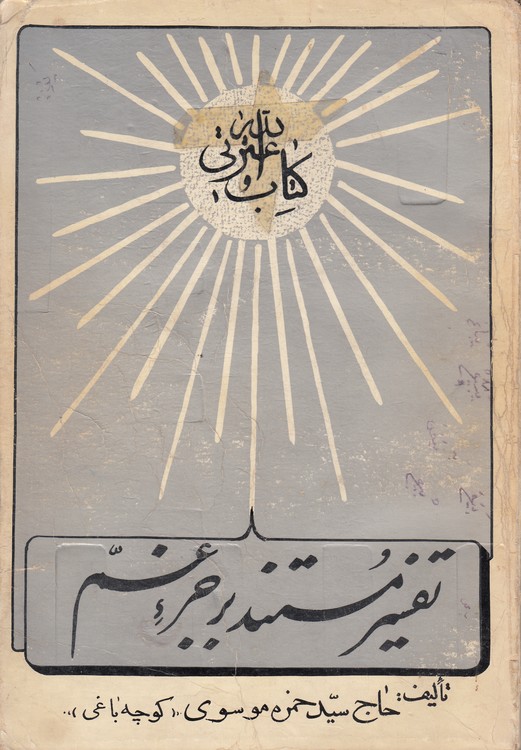 کتاب الله و عترتی
تفسیر مستند بر جزء عمّ
تألیف: حاج سیّد حمزه موسوی «کوچه باغی»